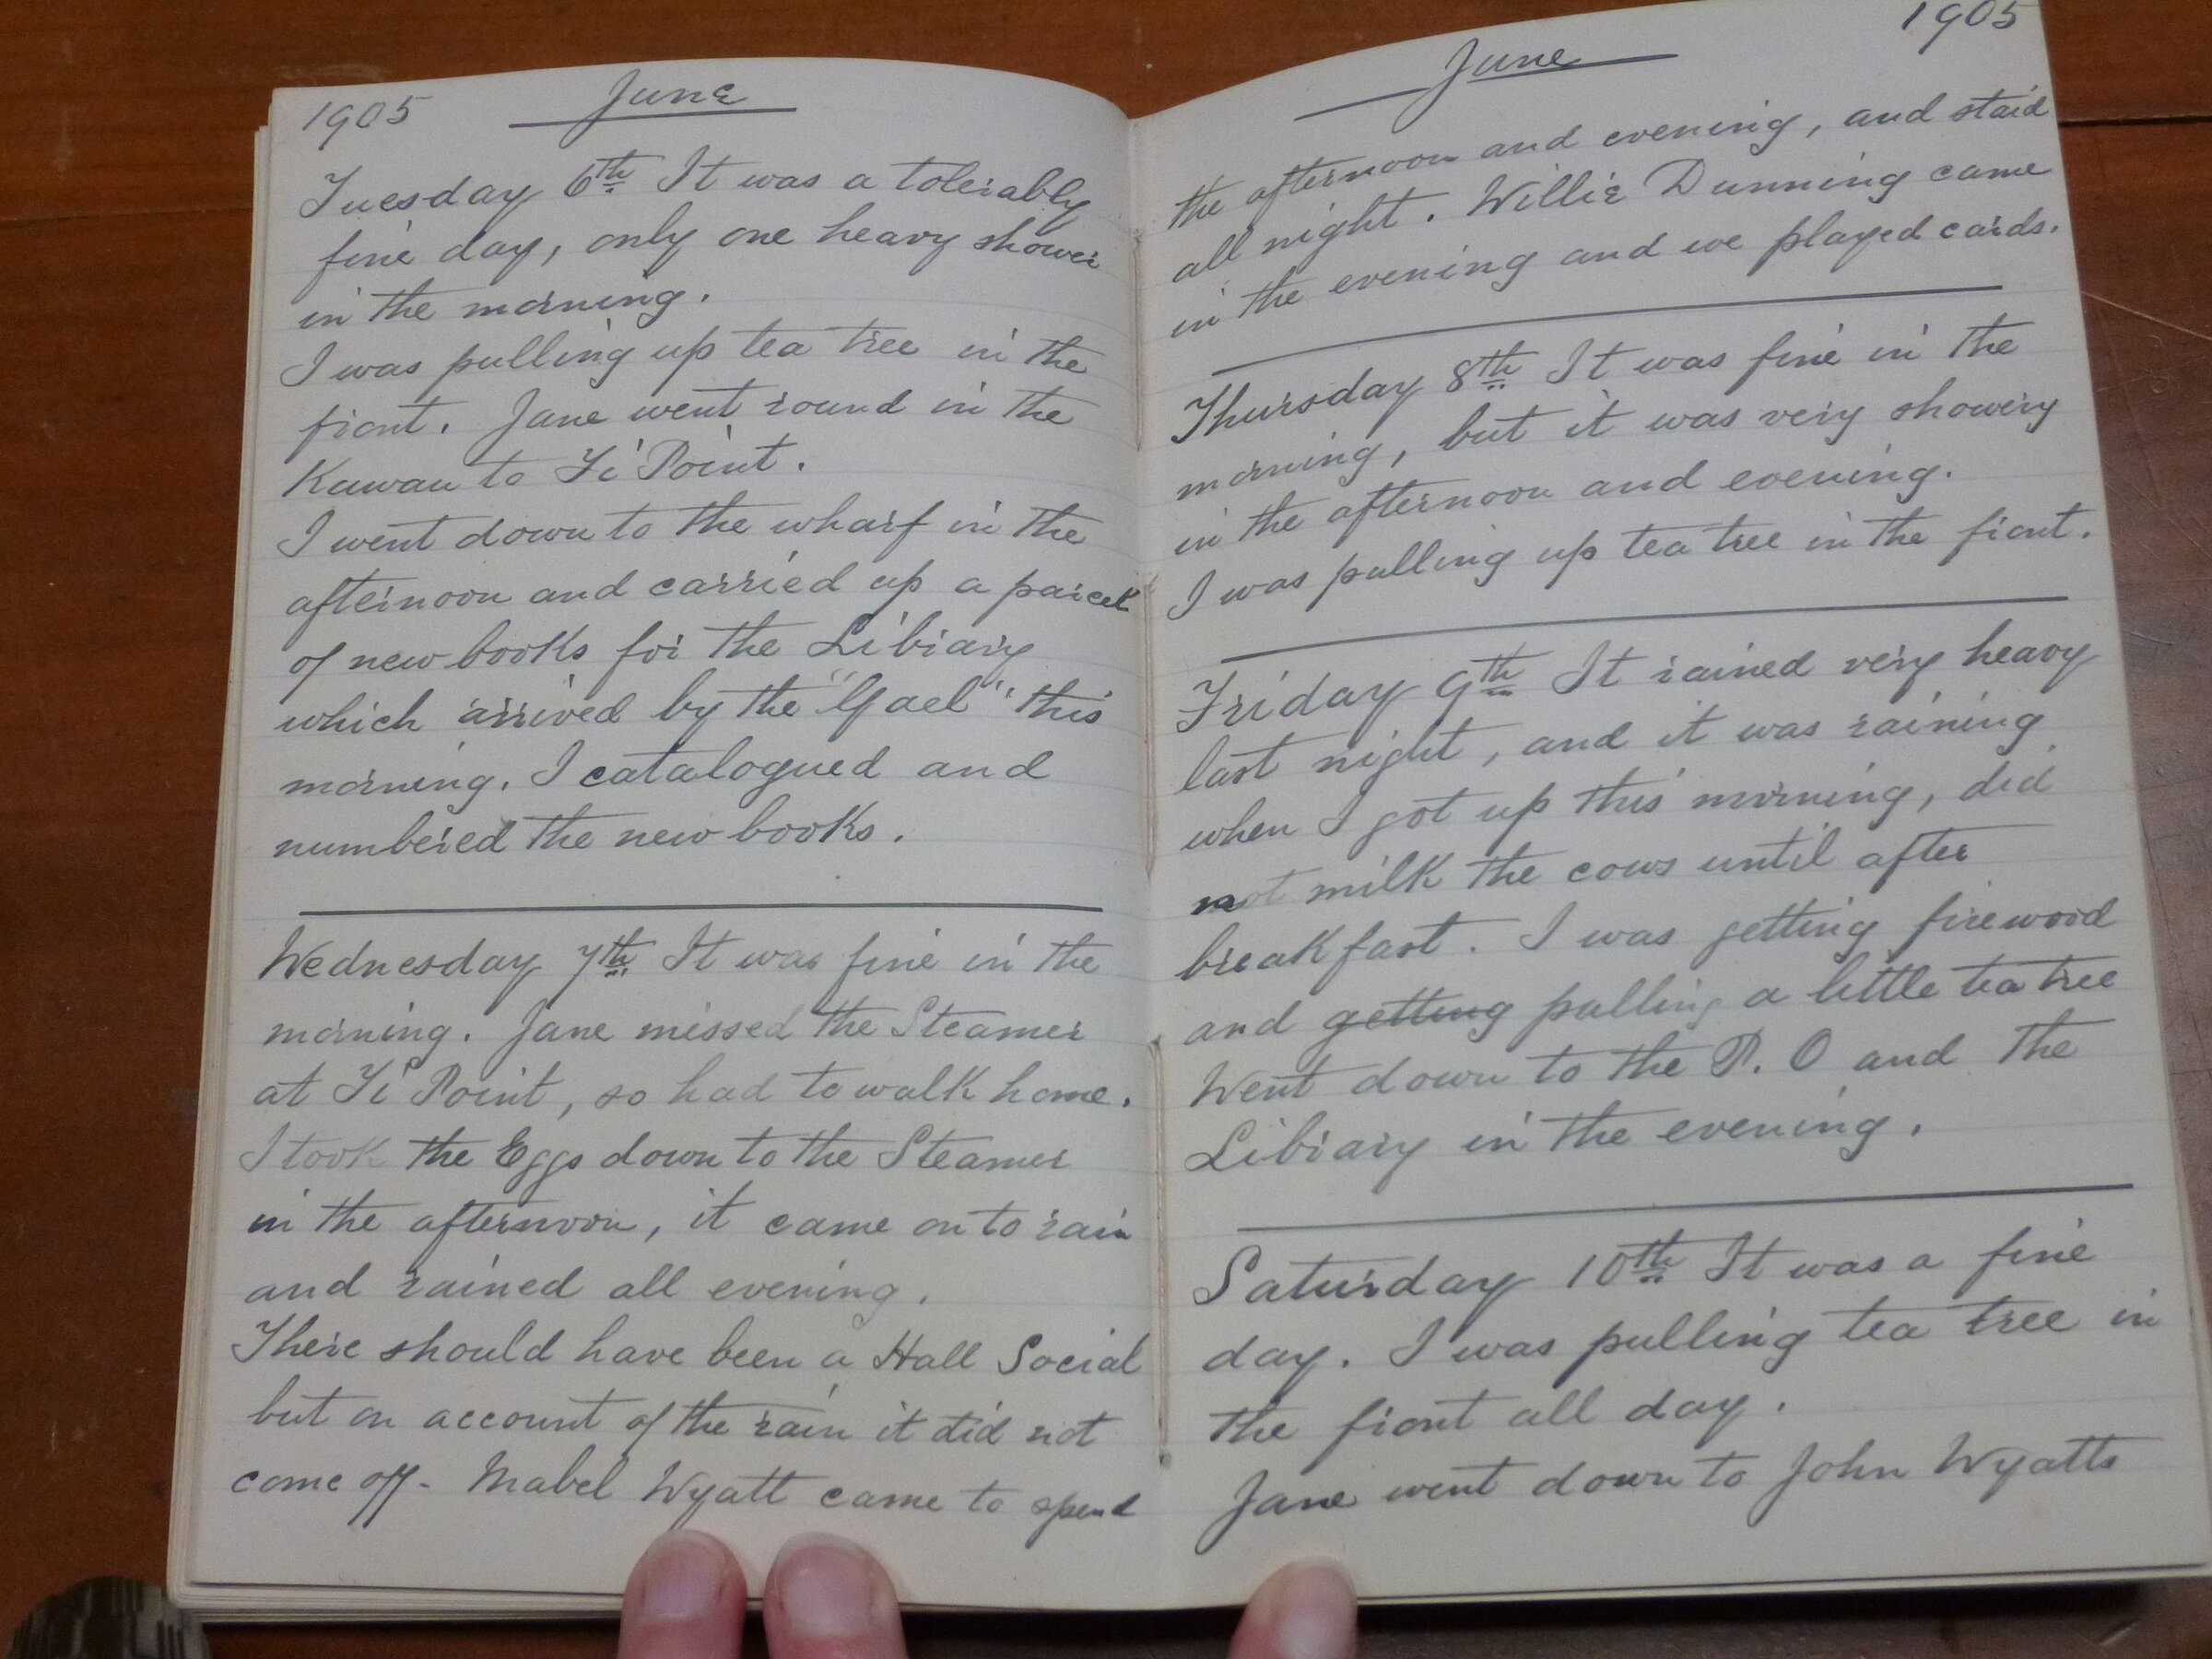 1905 June
Tuesday 6th It was a tolerably
fine day, only one heavy shower
in the morning.
I was pulling up tea tree in the
front. Jane went round in the
Kawau to Ti Point.
I went down to the wharf in the
afternoon and carried up a parcel
of new books for the Library
which arrived by the "Gael" this
morning. I catalogued and
numbered the new books.
Wednesday 7th It was fine in the
morning. Jane missed the Steamer
at Ti Point, so had to walk home.
I took the Eggs down to the Steamer
in the afternoon, it came on to rain
and rained all evening.
There should have been a Hall Social
but on account of the rain it did not
come off - Mabel Wyatt came to spend
June 1905
the afternoon and evening, and staid
all night. Willie Dunning came
in the evening and we played cards.
Thursday 8th It was fine in the
morning, but it was very showery
in the afternoon and evening.
I was pulling up tea tree in the front.
Friday 9th It rained very heavy
last night, and it was raining
when I got up this morning, did
not milk the cows until after
breakfast. I was getting firewood
and getting pulling a little tea tree
Went down to the P.O and the
Library in the evening.
Saturday 10th It was a fine
day. I was pulling tea tree in
the front all day.
Jane went down to John Wyatts